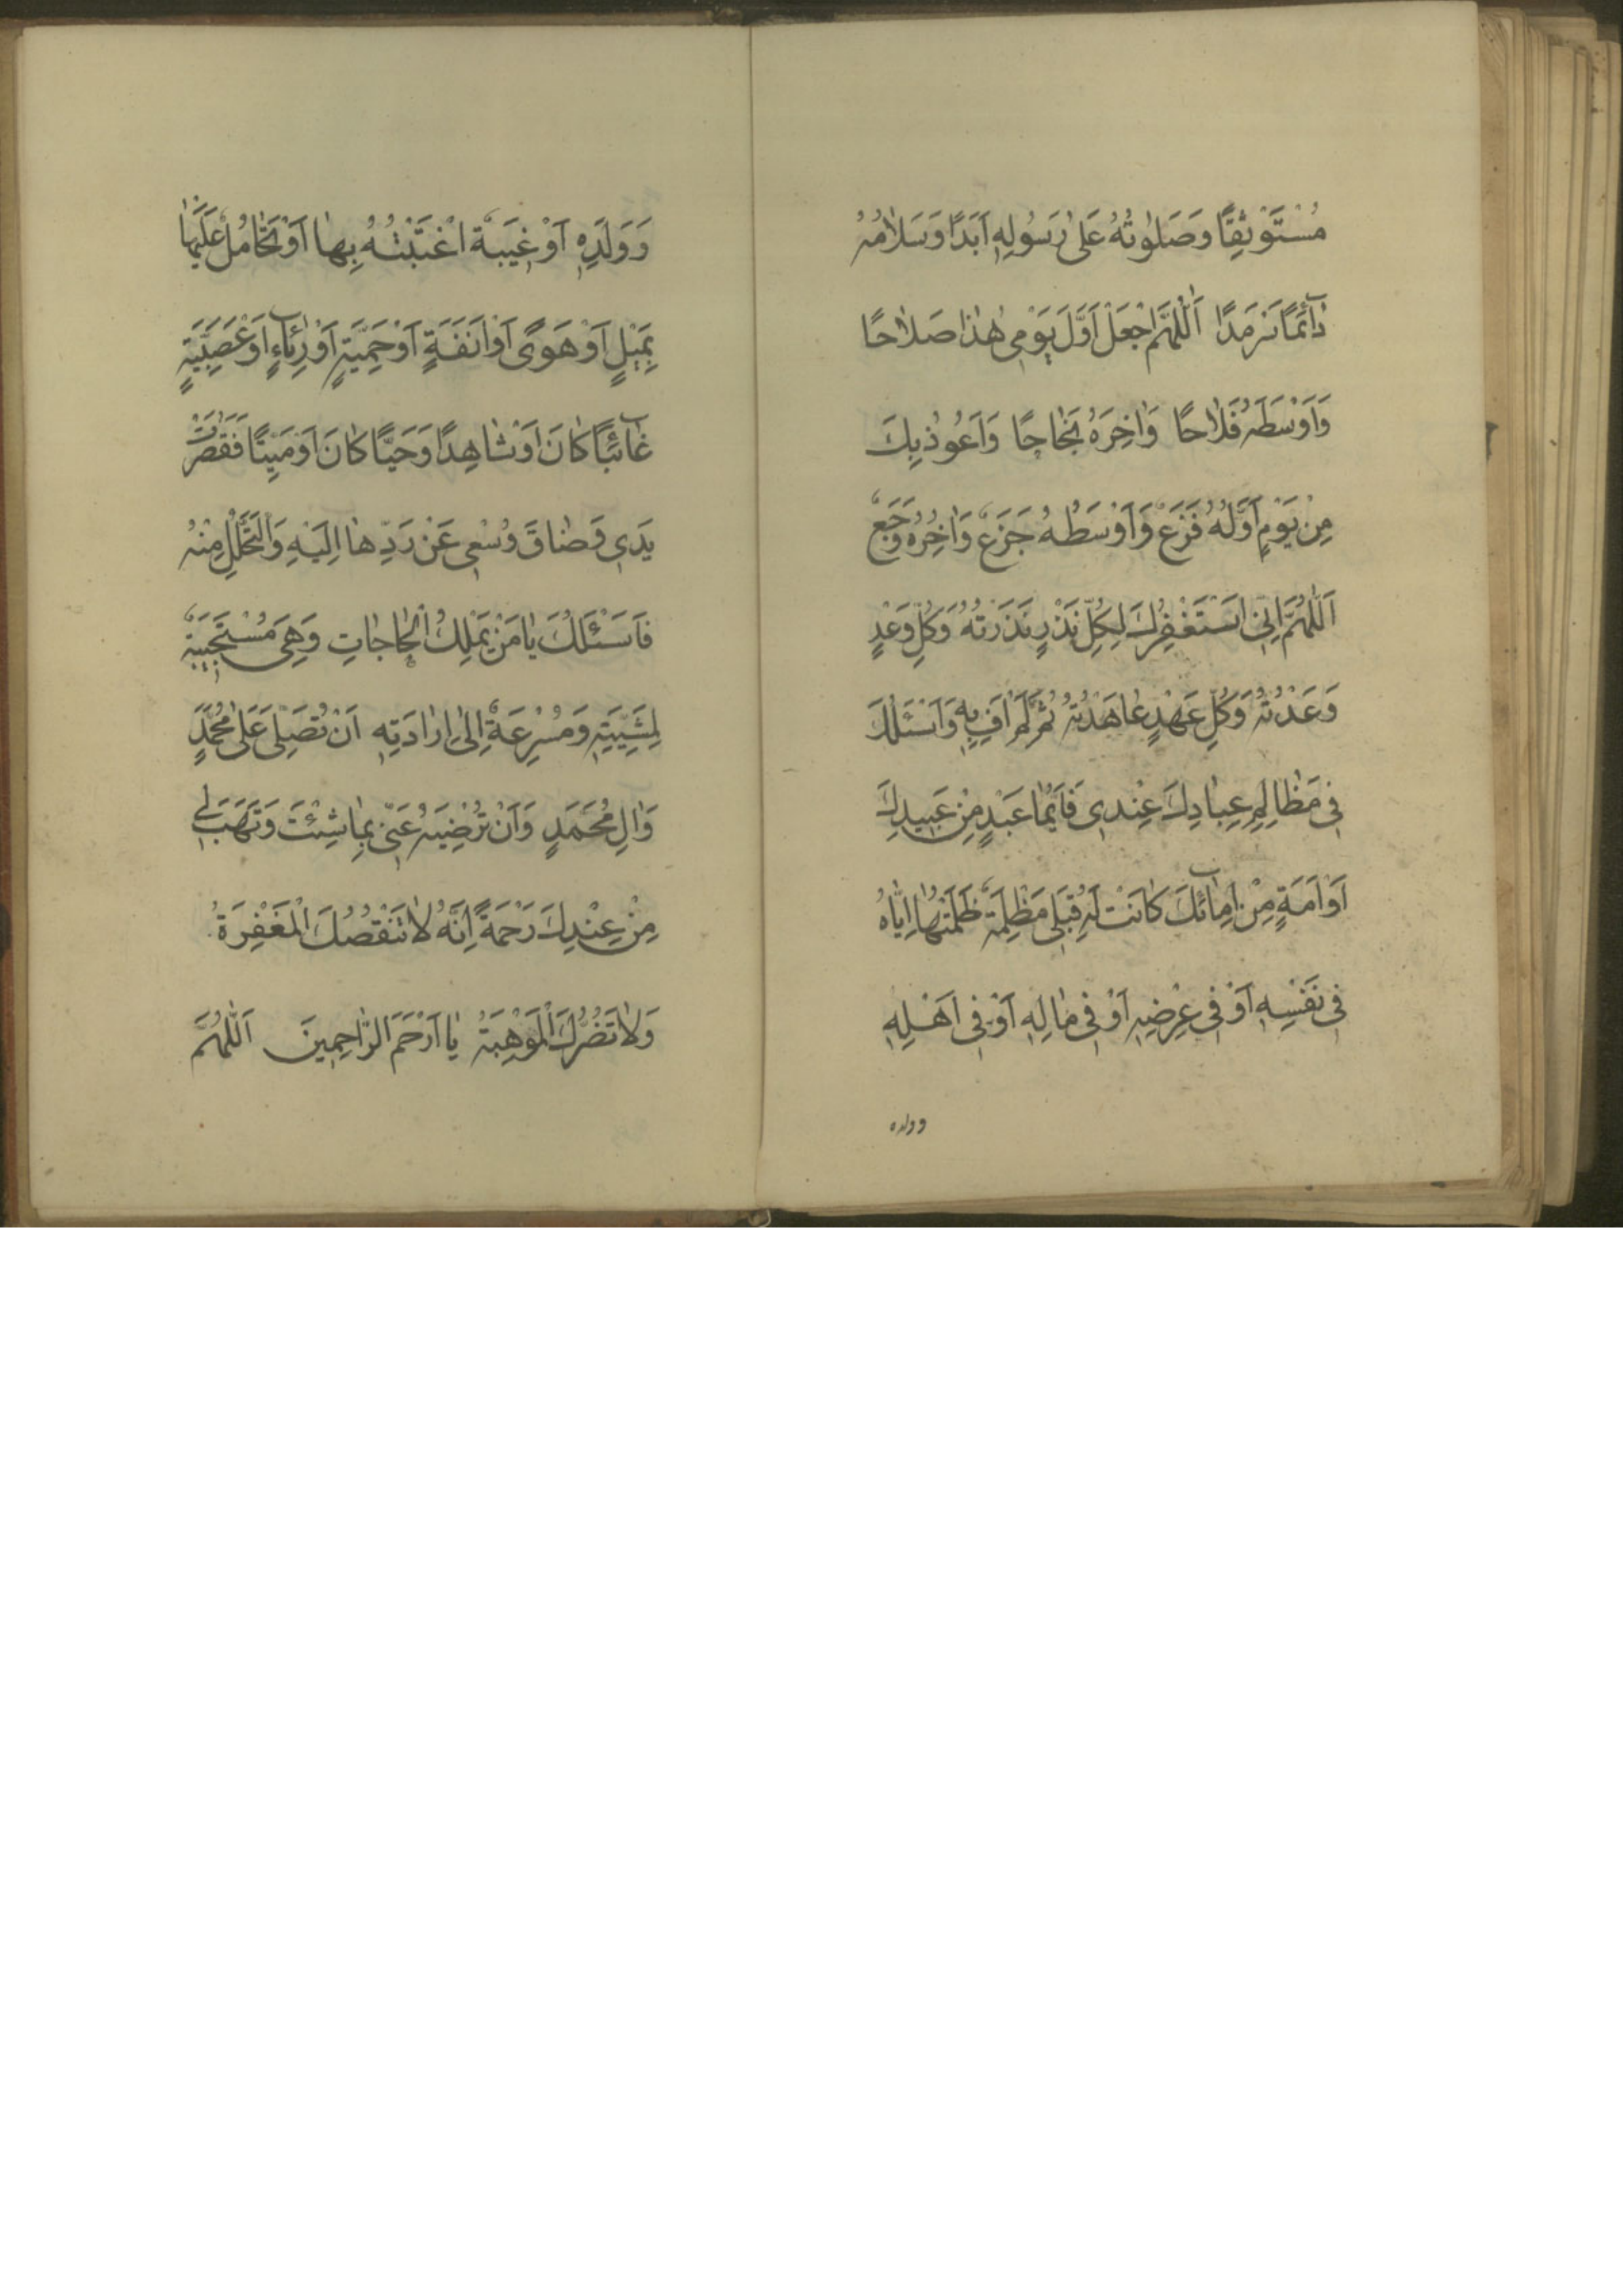 مُسْتَوْثِقًا وَصَلَوٰتُهُ عَلىٰ رَسُولِهِ اَبَدًا وَسَلَامُهُ
دٰائِمًا سَرْمَدًا اَللّٰهُمَّ اجْعَلْ اَوَّلَ يَوْمِي هٰذٰا صَلَاحًا
وَاَوْسَطَهُ فَلَاحًا وَاٰخِرَهُ نَجٰاحًا وَاَعُوذُ بِكَ
مِنْ يَوْمٍ اَوَّلُهُ فَزَعٌ وَاَوْسَطُهُ جَزَعٌ وَاٰخِرُهُ وَجَعٌ
اَللّٰهُمَّ اِنِّي اَسْتَغْفِرُكَ لِكُلِّ نَذْرٍ نَذَرْتُهُ وَكُلِّ وَعْدٍ
وَعَدْتُهُ وَكُلِّ عَهْدٍ عٰاهَدْتُهُ ثُمَّ لَمْ اَفِ بِهِ وَاَسْئَلُكَ
فِي مَظٰالِمِ عِبٰادِكَ عِنْدِي فَاَيُّمٰا عَبْدٍ مِنْ عَبِيدِكَ
اَوْ اَمَةٍ مِنْ اِمٰائِكَ كٰانَتْ لَهُ قِبَلِي مَظْلِمَةٌ ظَلَمْتُهٰا اِيّٰاهُ
فِي نَفْسِهِ اَوْ فِي عِرْضِهِ اَوْ فِي مٰالِهِ اَوْ فِي اَهْلِهِ
وولده
وَوَلَدِهِ اَوْ غِيبَةٌ اغْتَبْتُهُ بِهٰا اَوْ تَحٰامُلٌ عَلَيْهٰا
بِمَيْلٍ اَوْ هَوًى اَوْ اَنَفَةٍ اَوْ حَمِيَّةٍ اَوْ رِئٰاءٍ اَوْ عَصَبِيَّةٍ
غٰائِبًا كٰانَ اَوْ شٰاهِدًا وَحَيًّا كٰانَ اَوْ مَيِّتًا فَقَصُرَتْ
يَدِي وَضٰاقَ وُسْعِي عَنْ رَدِّهٰا اِلَيْهِ وَالتَّحَلُّلِ مِنْهُ
فَاَسْئَلُكَ يٰا مَنْ يَمْلِكُ الْحٰاجٰاتِ وَهِيَ مُسْتَجِيبَةٌ
لِمَشِيَّتِهِ وَمُسْرِعَةٌ اِلىٰ اِرٰادَتِهِ اَنْ تُصَلِّيَ عَلىٰ مُحَمَّدٍ
وَاٰلِ مُحَمَّدٍ وَاَنْ تُرْضِيَهُ عَنِّي بِمٰا شِئْتَ وَتَهَبَ لِي
مِنْ عِنْدِكَ رَحْمَةً اِنَّهُ لَا تَنْقُصُكَ الْمَغْفِرَةُ
وَلَا تَضُرُّكَ الْمَوْهِبَةُ يٰا اَرْحَمَ الرّٰاحِمِينَ اَللّٰهُمَّ